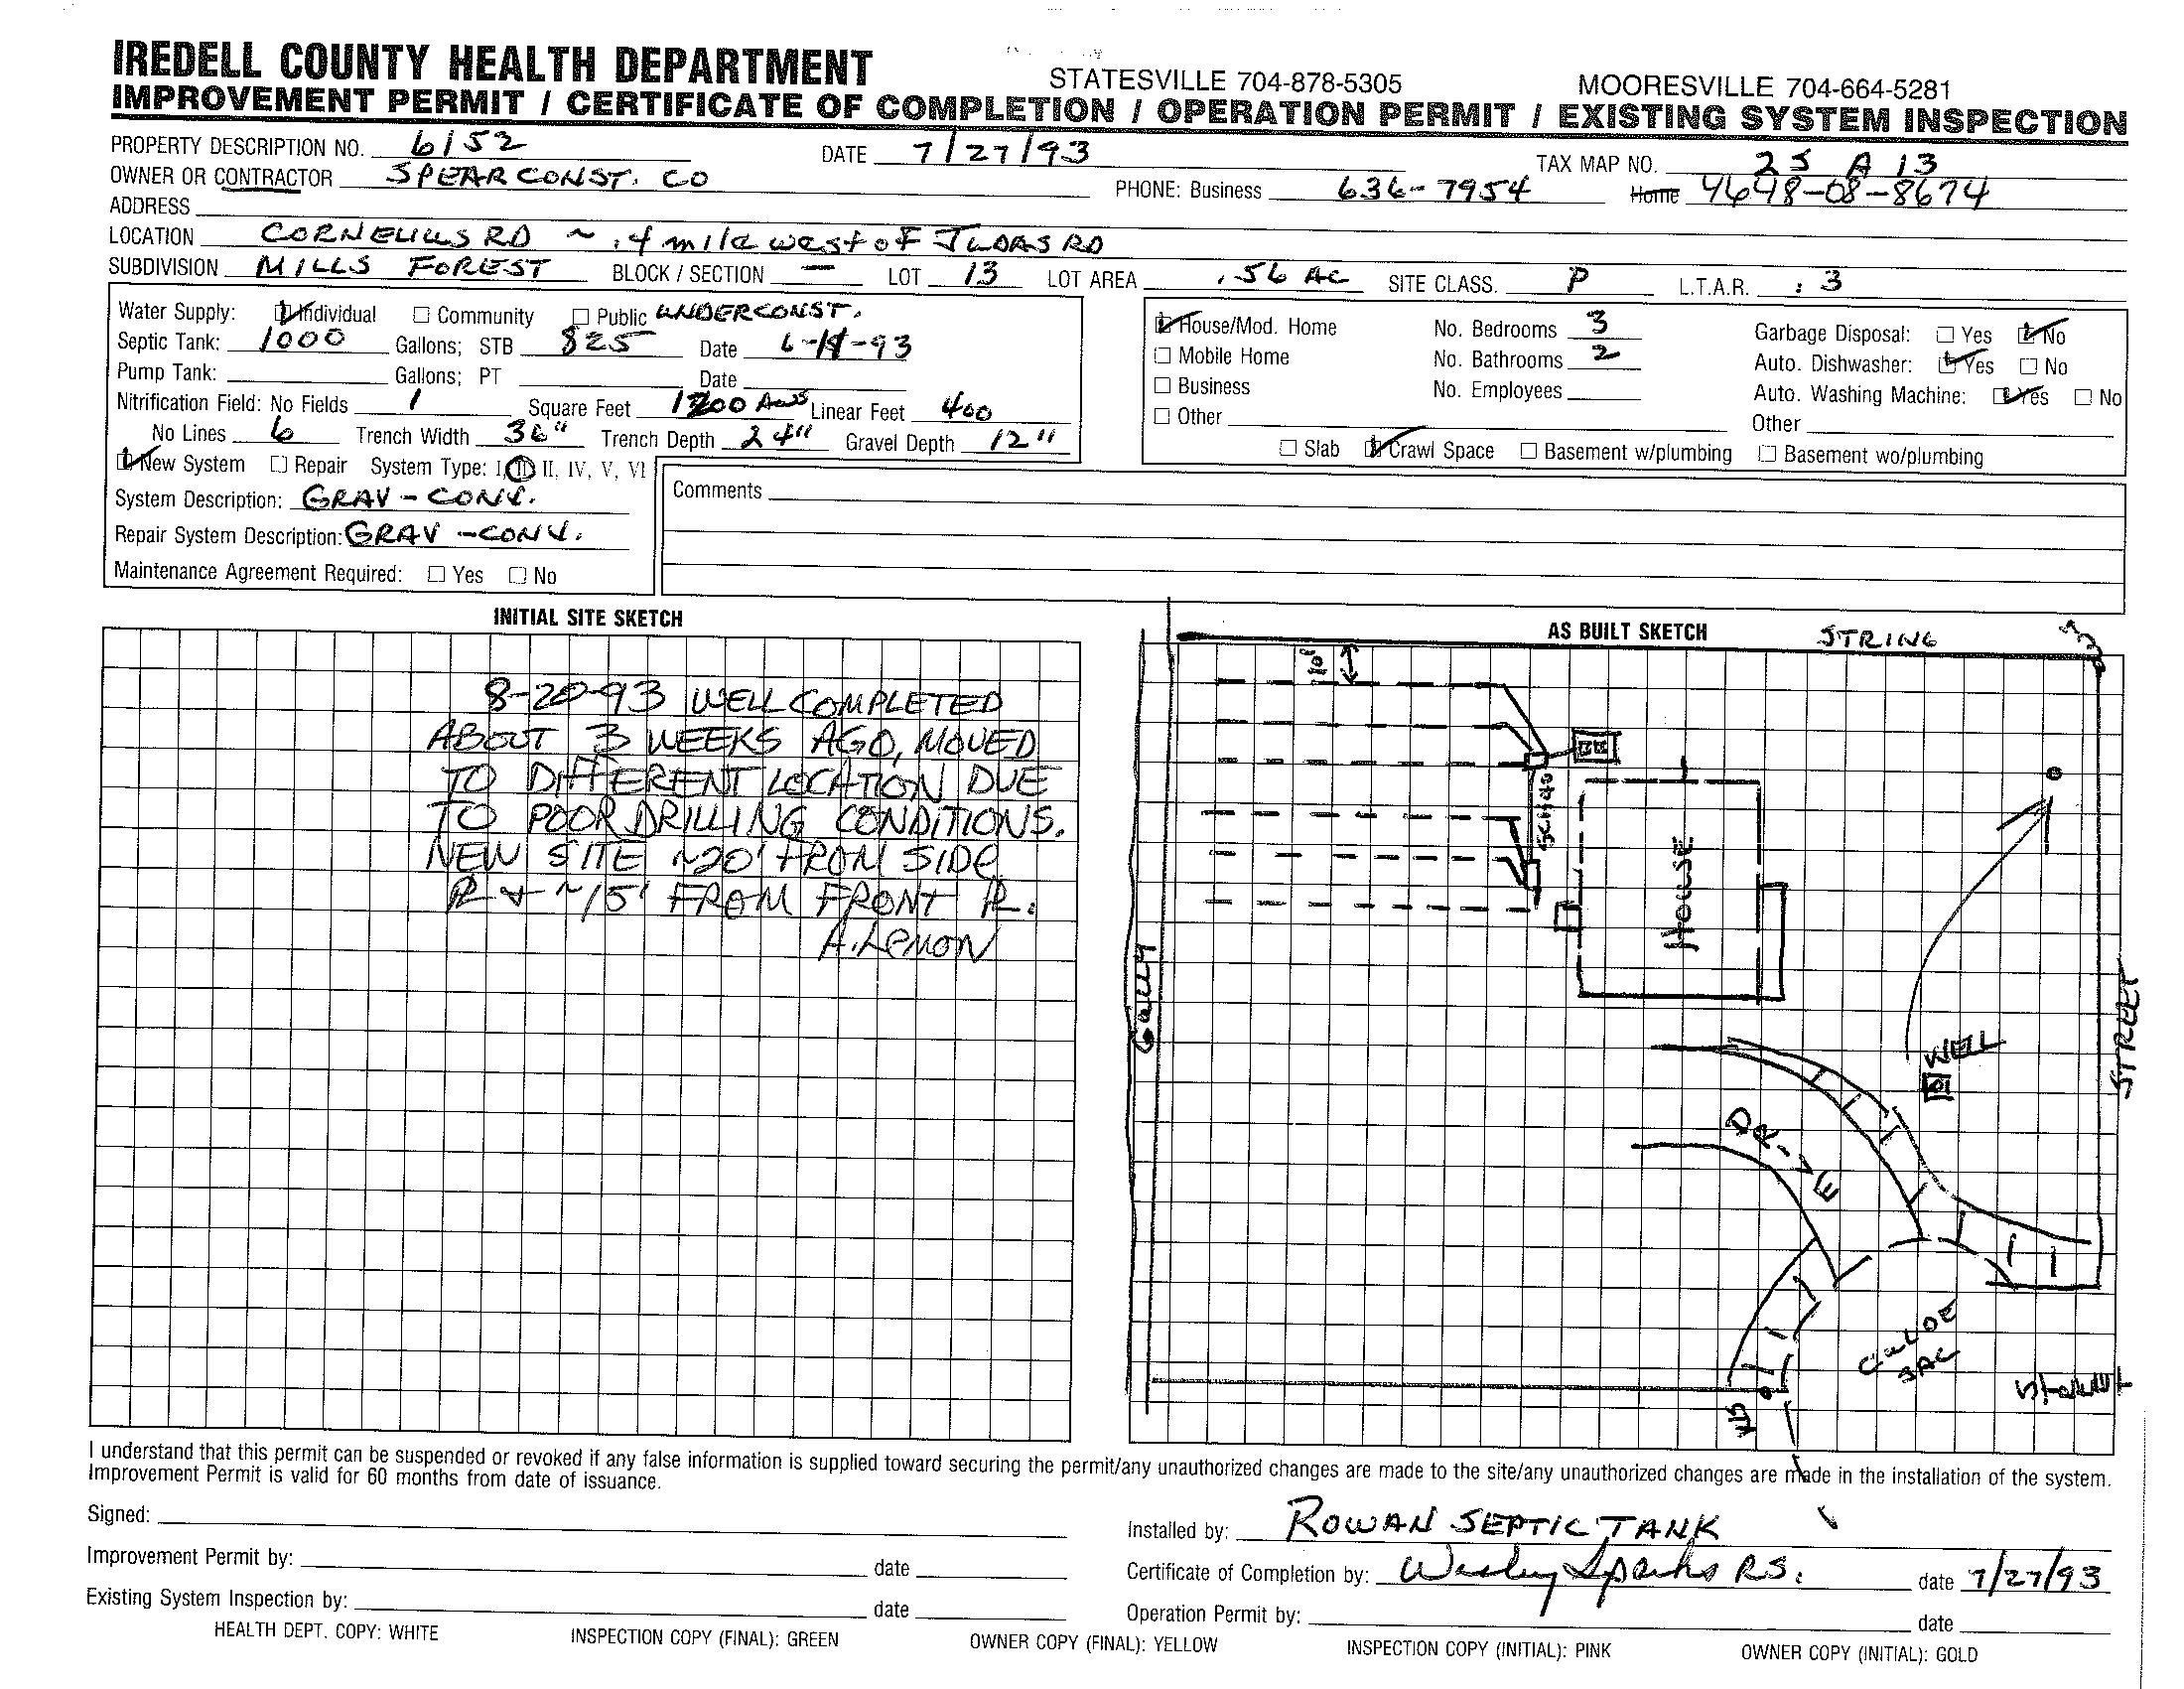 IREDELL COUNTY HEALTH DEPARTMENT STATESVILLE 704-878-5305 MOORESVILLE 704-664-5281
IMPROVEMENT PERMIT / CERTIFICATE OF COMPLETION / OPERATION PERMIT / EXISTING SYSTEM INSPECTION
PROPERTY DESCRIPTION NO. 6152 DATE 7/27/93 TAX MAP NO. 2S A 13
OWNER OR CONTRACTOR SPEAR CONST. CO PHONE: Business 636-7954 Home 4648-08-8674
ADDRESS
LOCATION CORNELIUS RD ~ .4 mile west of JUDAS RD
SUBDIVISION MILLS FOREST BLOCK / SECTION — LOT 13 LOT AREA .56 AC SITE CLASS. P L.T.A.R. .3
Water Supply: Individual Community Public UNDERCONST.
Septic Tank: 1000 Gallons; STB 825 Date 6-11-93
Pump Tank: Gallons; PT Date
Nitrification Field: No Fields 1 Square Feet 1200 Linear Feet 400
No Lines 6 Trench Width 36" Trench Depth 24" Gravel Depth 12"
New System Repair System Type: I, II, II, IV, V, VI
System Description: GRAV - CONV.
Repair System Description: GRAV - CONV.
Maintenance Agreement Required: Yes No
House/Mod. Home No. Bedrooms 3 Garbage Disposal: Yes No
Mobile Home No. Bathrooms 2 Auto. Dishwasher: Yes No
Business No. Employees Auto. Washing Machine: Yes No
Other Other
Slab Crawl Space Basement w/plumbing Basement wo/plumbing
Comments
INITIAL SITE SKETCH
8-20-93 WELL COMPLETED
ABOUT 3 WEEKS AGO, MOVED
TO DIFFERENT LOCATION DUE
TO POOR DRILLING CONDITIONS.
NEW SITE ~20' FROM SIDE
PL & ~15' FROM FRONT PL.
A. LEMON
AS BUILT SKETCH STRING
10'
SCH 40
HOUSE
GULLY
WELL
STREET
DRIVE
CULDE
SAC
I understand that this permit can be suspended or revoked if any false information is supplied toward securing the permit/any unauthorized changes are made to the site/any unauthorized changes are made in the installation of the system.
Improvement Permit is valid for 60 months from date of issuance.
Signed:
Improvement Permit by: date
Existing System Inspection by: date
Installed by: ROWAN SEPTIC TANK
Certificate of Completion by: Wesley Sparks RS. date 7/27/93
Operation Permit by: date
HEALTH DEPT. COPY: WHITE INSPECTION COPY (FINAL): GREEN OWNER COPY (FINAL): YELLOW INSPECTION COPY (INITIAL): PINK OWNER COPY (INITIAL): GOLD